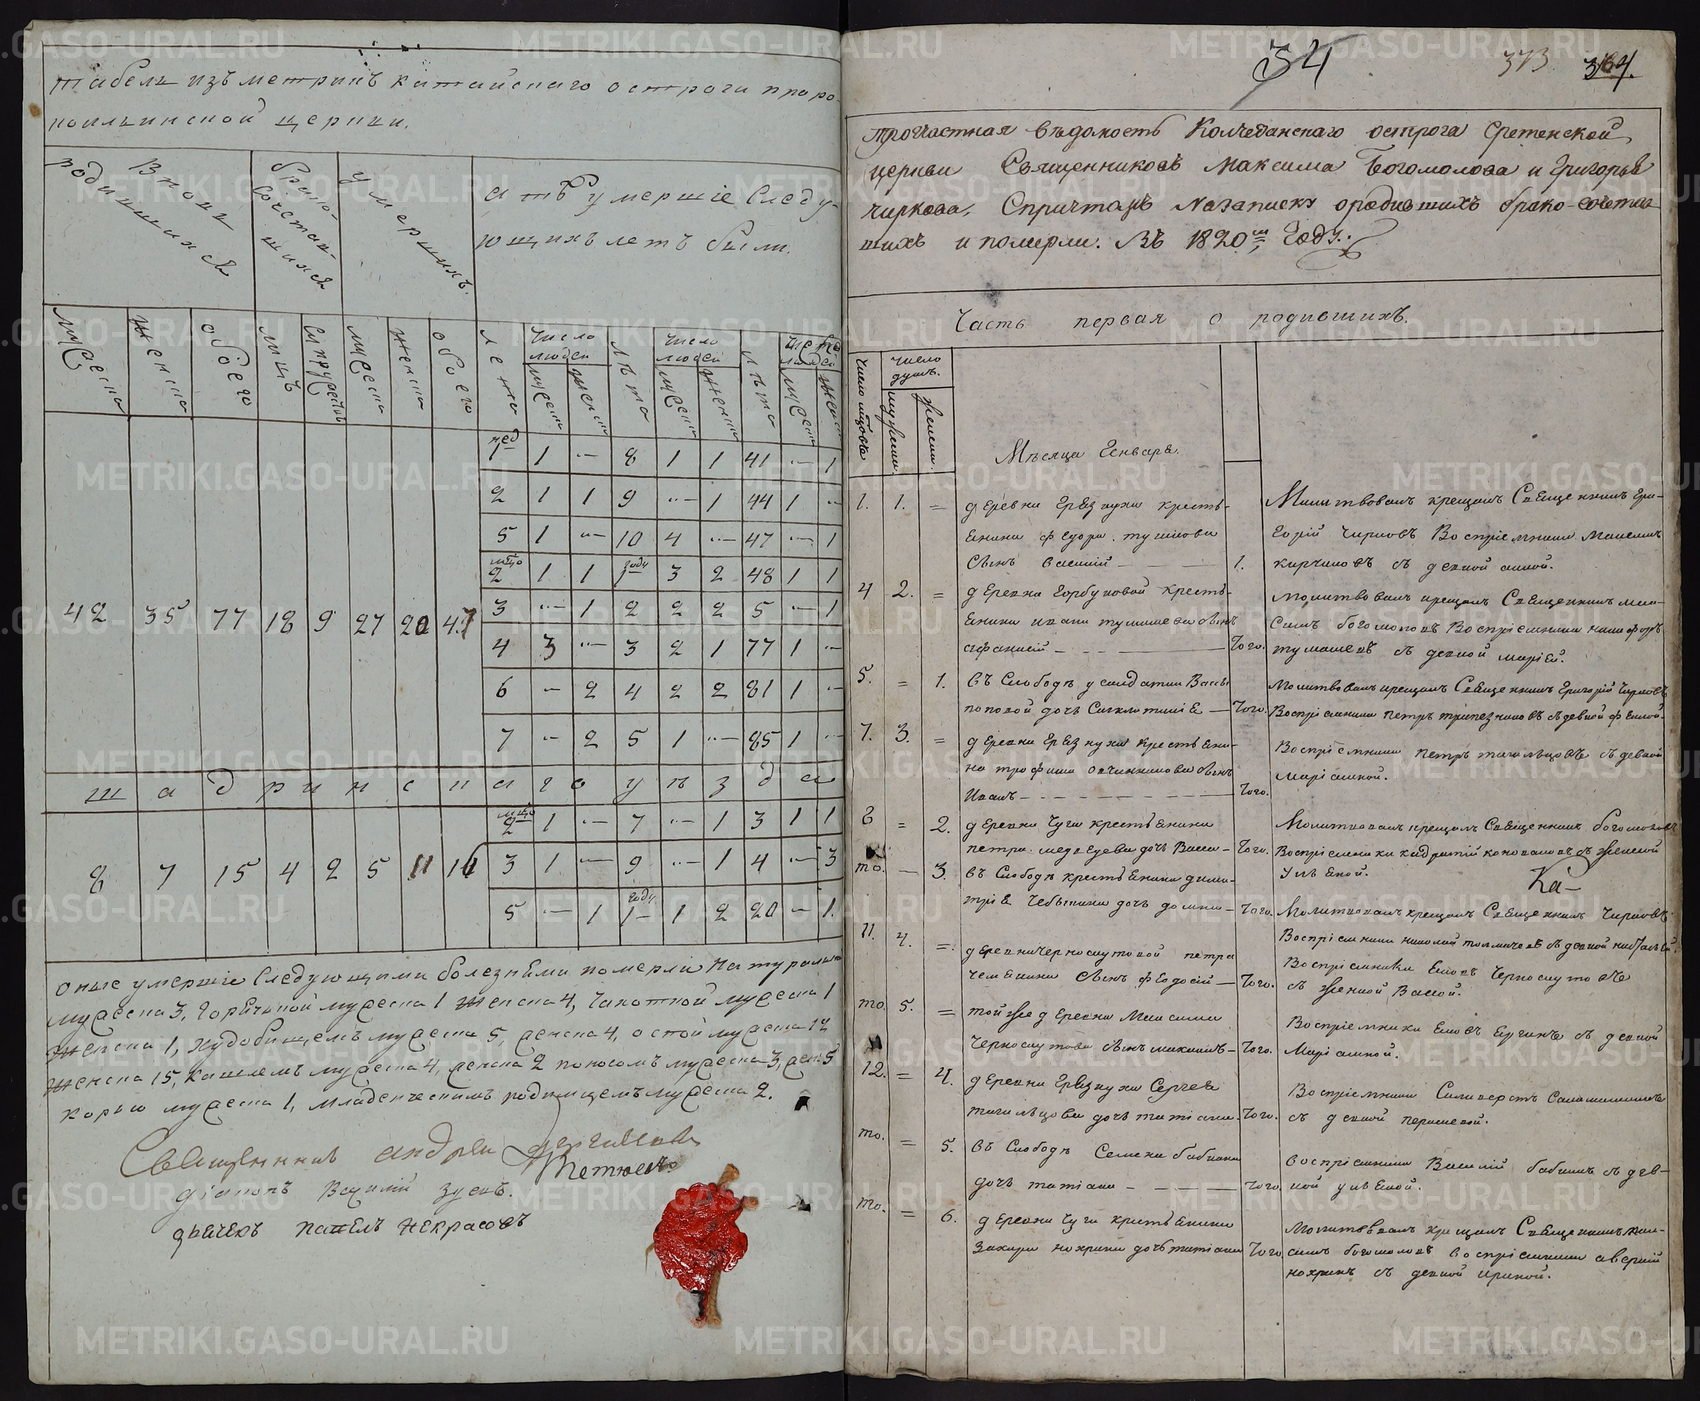 табель изъ метрикъ катайскаго острога проро-
коильинской церкви.
Вновь родившихся
бракосочетавшихся
умершихъ.
а тѣ умершіе следу-
ющихъ летъ были.
мужеска
женска
обоего
лицъ
супружествъ
мужеска
женска
обоего
лета
число людей
лѣта
число людей
лѣта
число людей
мужеска женска мужеска женска мужеска женска
нед
1 1 — 8 1 1 41 — 1
2 1 1 9 — 1 44 1 —
5 1 — 10 4 — 47 — 1
2 1 1 1 3 2 48 1 1
42 35 77 18 9 27 20 47
3 — 1 2 2 2 5 — 1
4 3 — 3 2 1 77 1 —
6 — 2 4 2 2 81 1 —
7 — 2 5 1 — 85 1 —
шадринскаго уѣзда
2 1 — 7 — 1 3 1 1
8 7 15 4 2 5 11 16
3 1 — 9 — 1 4 — 3
5 — 1 1 1 2 20 — 1
оные умершіе следующими болезньми померли натурально
мужеска 3, горячкой мужеска 1 женска 4, чахоткой мужеска 1
женска 1, худобищемъ мужеска 5, женска 4, оспой мужеска 12
женска 15, кашлемъ мужеска 4, женска 2 поносомъ мужеска 3, женс 5
корью мужеска 1, младенческимъ родимцемъ мужеска 2.
Священникъ андрей
діаконъ Василій зуевъ.
дьячекъ павелъ некрасовъ
34 373 364.
Трочастная вѣдомость Колчеданскаго острога Сретенской
церкви Священниковъ Максима Богомолова и Григорья
Чиркова, Спричтомъ Назаписку ородившихъ брако-сочетав
шихъ и померли. Въ 1820м Году.
Часть первая о родившихъ.
Число мѣсяца
число душъ.
мужска.
женска.
Мѣсяца Генваря.
1. 1. = деревни Брѣзнухи кресть-
янина федора тушнова
Сынъ василій — 1.
Молитвовалъ крещалъ Священникъ Гри-
горій Чирковъ Воспріемники Максимъ
кирчиковъ съ девкой анной.
4 2. = деревни Горбуновой кресть-
янина ивана тушмева сынъ
афанасій — Того.
молитвовалъ крещалъ Священникъ мак-
симъ богомоловъ Воспріемники никифоръ
тумашевъ съ девкой маріей.
5. = 1. въ Слободѣ у солдатки Васы
поповой дочь Синклитикіе — Того.
Молитвовалъ крещалъ Священникъ Григорій Чирковъ
Воспріемники петръ трапезниковъ съ девкой феклой.
7. 3. = деревни Брѣзнухи крестьяни-
на трофима овчинникова сынъ
Иванъ — Того.
Воспріемники петръ тагильцовъ съ девкой
маріамной.
8 = 2. деревни Чуги крестьянина
петра медведева дочь Васса — Того.
Молитвовалъ крещалъ Священникъ богомоловъ
Воспріемники кидратій коноваловъ съ женкой
Ульяной.
Ка-
то. — 3. въ Слободѣ крестьянина дими-
тріе Чебыкина дочь домна — Того.
Молитвовалъ крещалъ Священникъ Чирковъ.
Воспріемники николай толмачевъ съ девкой натальей.
11. 4. = деревни Черноскутовой петра
чемякина сынъ феодосій — Того.
Воспріемники Еловъ Черноскутовъ
съ женкой Вассой.
то. 5. = той же деревни Максима
Черноскутова сынъ максимъ — Того.
Воспріемники Еловъ Бугинъ съ девкой
Маріамной.
12. = 4. деревни Брѣзнухи Сергея
тагильцова дочь татіана. Того.
Воспріемники Силиверстъ Саламатовъ
съ девкой
то. = 5. въ Слободѣ Семена бабкина
дочь татіана — Того.
Воспріемники Василій бабкинъ съ дев-
кой ульяной.
то. = 6. деревни Чуги крестьянина
Захара нохрина дочь татіана Того
Молитвовалъ крещалъ Священникъ мак-
симъ богомоловъ воспріемники аверкій
нохринъ съ девкой ириной.
METRIKI.GASO-URAL.RU